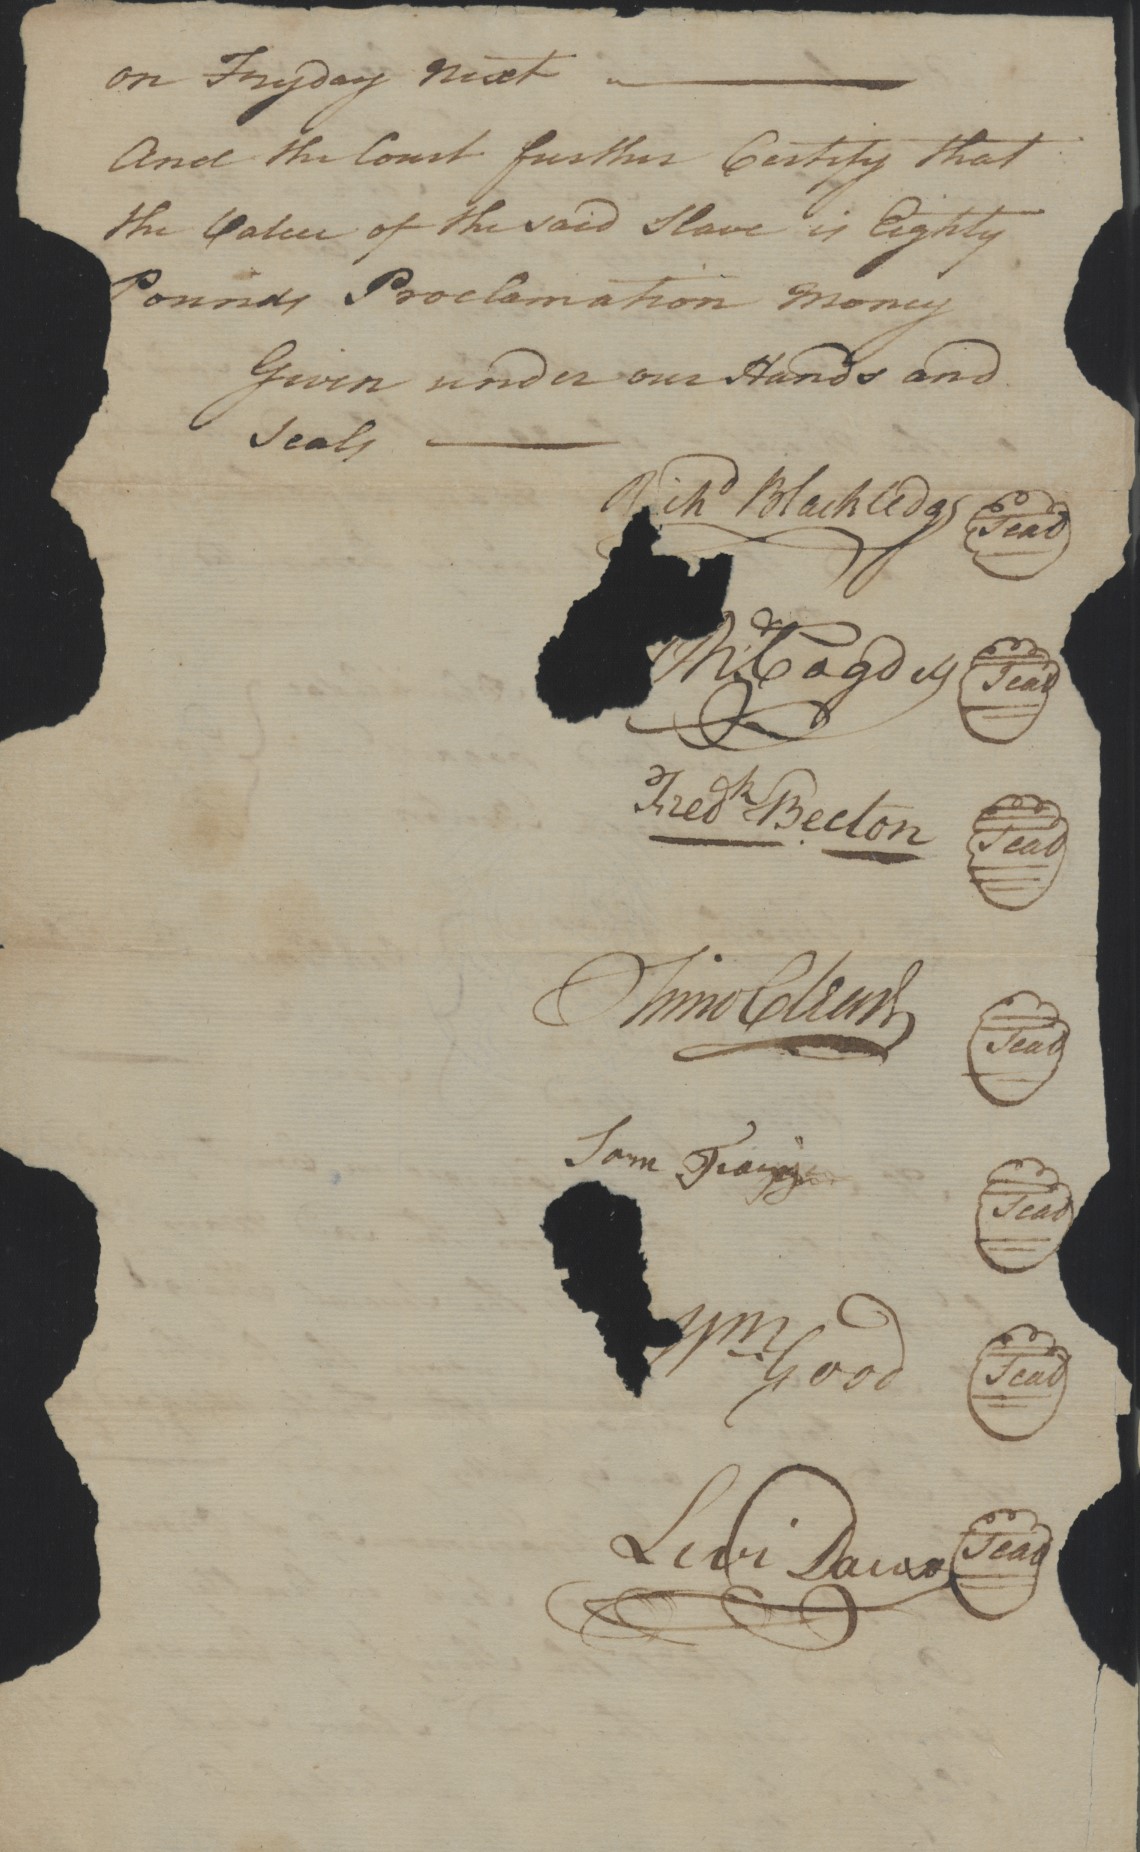 on Fryday Next
And the Court further Certify that
the Value of the said Slave is Eighty
Pounds Proclamation Money
Given under our Hands and
Seals
Richd Blackledge Seal
Cogdell Seal
Fredk Becton Seal
Timo Cleary Seal
Sam Seal
Wm Good Seal
Levi Dawson Seal